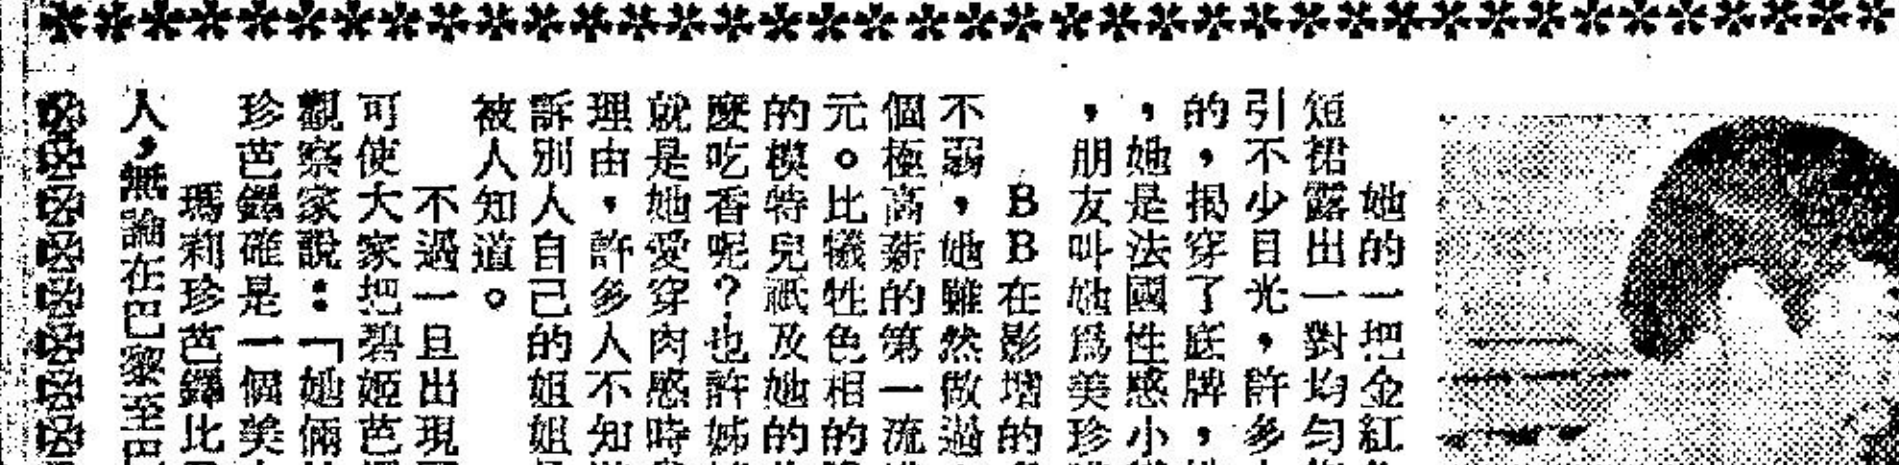 她的一把金紅
短裙露出一對均勻
引不少目光，許多
的，揭穿了底牌，
，她是法國性感小
，朋友叫她為美珍
BB在影壇的
不弱，她雖然做過
個極高薪的第一流
元。比犧牲色相的
的模特兒祇及她的
麼吃香呢？也許姊
就是她愛穿肉感時
理由，許多人不知
訴別人自己的姐姐
被人知道。
不過一旦出現
可使大家把碧姬芭
觀察家說：「她倆
珍芭鐸確是一個美
瑪莉珍芭鐸比
人，無論在巴黎至巴